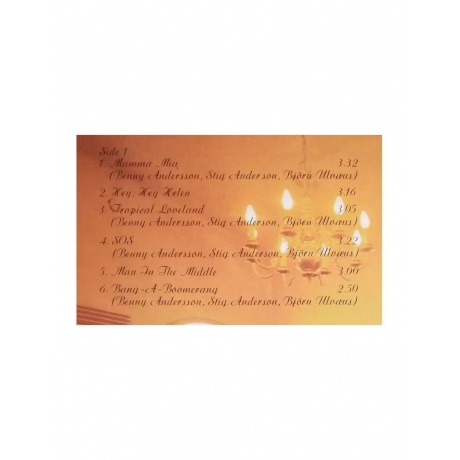 Side 1
1. Mamma Mia 3.32
(Benny Andersson, Stig Anderson, Björn Ulvæus)
2. Hey, Hey Helen 3.16
3. Tropical Loveland 3.05
(Benny Andersson, Stig Anderson, Björn Ulvæus)
4. SOS 3.22
(Benny Andersson, Stig Anderson, Björn Ulvæus)
5. Man In The Middle 3.00
6. Bang-A-Boomerang 2.50
(Benny Andersson, Stig Anderson, Björn Ulvæus)